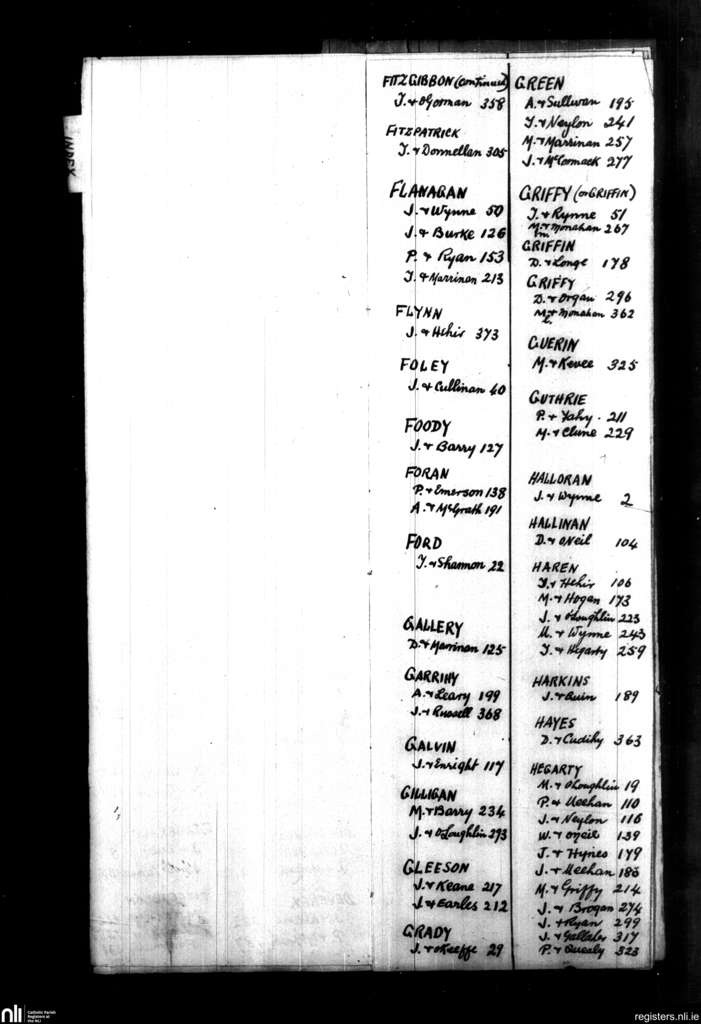 INDEX
FITZGIBBON (continued)
T. & O'Gorman 358
FITZPATRICK
T. & Donnellan 305
FLANAGAN
J. & Wynne 50
J. & Burke 126
P. & Ryan 153
T. & Marrinan 213
FLYNN
J. & Hehir 373
FOLEY
J. & Cullinan 40
FOODY
J. & Barry 127
FORAN
P. & Emerson 138
A. & McGrath 191
FORD
T. & Shannon 22
GALLERY
D. & Marrinan 125
GARRIHY
A. & Leary 199
J. & Russell 368
GALVIN
J. & Enright 117
GILLIGAN
M. & Barry 234
J. & O'Loughlin 293
GLEESON
J. & Keane 217
J. & Earles 212
GRADY
J. & O'Keeffe 29
GREEN
A. & Sullivan 195
T. & Neylon 241
M. & Marrinan 257
J. & McCormack 277
GRIFFY (or GRIFFIN)
T. & Rynne 51
M. & Monahan 267
GRIFFIN
D. & Longe 178
GRIFFY
D. & Organ 296
M. & Monahan 362
GUERIN
M. & Kevee 325
GUTHRIE
P. & Fahy 211
M. & Clune 229
HALLORAN
J. & Wynne 2
HALLINAN
D. & O'Neil 104
HAREN
T. & Hehir 106
M. & Hogan 173
J. & O'Loughlin 223
M. & Wynne 243
T. & Hegarty 259
HARKINS
J. & Quin 189
HAYES
D. & Cudihy 363
HEGARTY
M. & O'Loughlin 19
P. & Meehan 110
J. & Neylon 116
W. & O'Neil 139
T. & Hynes 179
J. & Meehan 186
M. & Griffy 214
J. & Brogan 274
J. & Ryan 299
J. & Gallaher 317
P. & Quealy 323
nli
Catholic Parish
Registers at
the NLI
registers.nli.ie